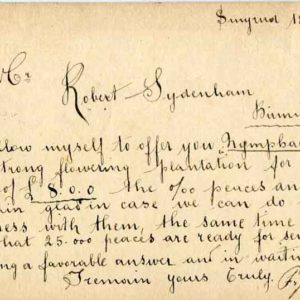 Smyrna 18
Mr
Robert Sydenham
Birmi
low myself to offer you Nympha
strong flowering plantation for
of £ 8.0.0 the %₀ peaces an
in glad in case we can do
ness with them, the same time
that 25.000 peaces are ready for se
ng a favorable answer and in waiti
I remain yours truly